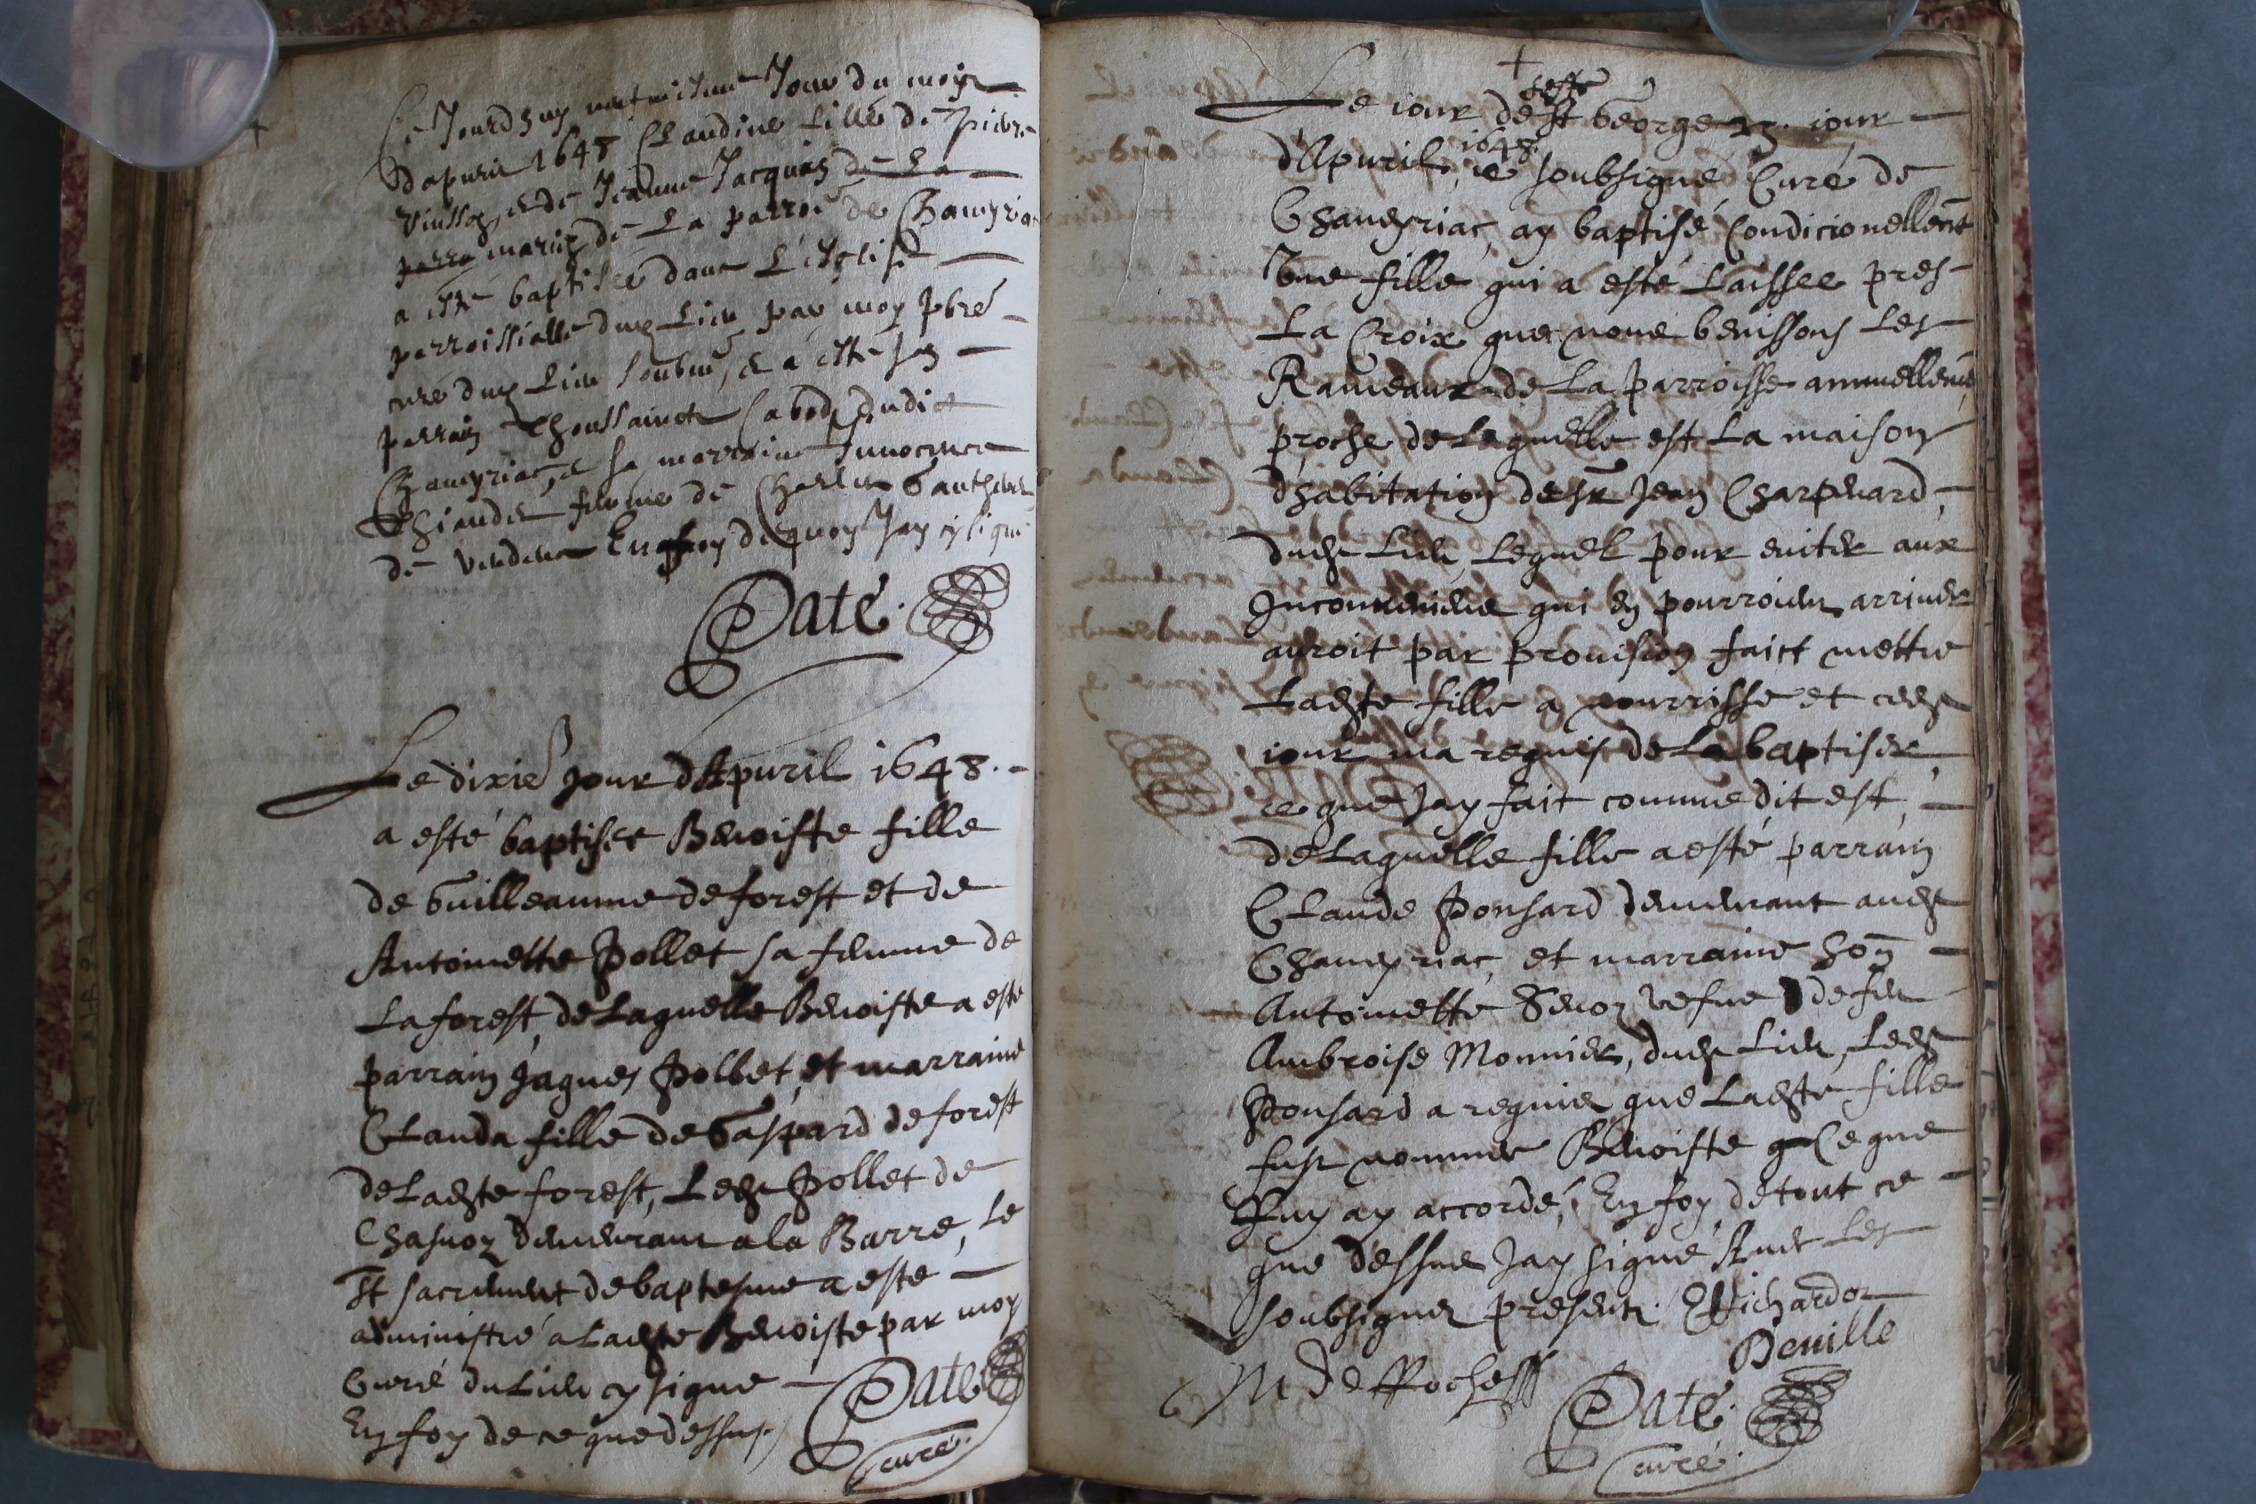 Ce Jourdhuy Jour du moys
Dapuril 1648 Claudine fille de Pierre
et de Jeanne Jacquin de La
mariez de La parroe de Chaveyria
a esté baptisee dans L'esglise
parroissialle dud Lieu par moy pbre
curé dud Lieu soubné, et a esté son
parrain Thoussainct Cabod dudict
Chaveyriac, et sa marraine Innocence
femme de Charles Gauthier
de En foy de quoy Jay cy signé
Paté.
Le dixie Jour d'Apuril 1648.
a esté baptisee Benoiste fille
de Guilleaume deforest et de
Antoinette Pollet sa femme de
Laforest, de Laquelle Benoiste a esté
parrain Jaques Pollet, et marraine
Clauda fille de Gaspard deforest
de Ladte forest, Ledt Pollet de
demeurant a la Barre, Le
St sacrement de baptesme a esté
administré a Ladte Benoiste par moy
Curé du Lieu cy signé
En foy de ce que dessus.
Paté
curé.
+
feste
Le iour de St George 23. iour
1648.
d'Apuril, ie soubsigné Curé de
Chaveyriac, ay baptisé Condicionellemt
Vne fille qui a esté Laissee pres
La Croix que nous benissons Les
Rameaux de La parroisse annuellemt,
proche de Laquelle est La maison
d'habitation de Sr Jean Charpenard,
dudt Lieu, Lequel pour euiter aux
Inconueniens qui en pourroient arriuer
auroit par prouision faict mettre
Ladte fille a nourrisse et cedt
iour ma requis de La baptiser,
ce que Jay fait comme dit est,
de Laquelle fille a esté parrain
Claude Ponsard demeurant audt
Chaveyriac, et marraine hon
Antoinette vefue de feu
Ambroise Monnier, dudt Lieu, Ledt
Ponsard a requis que Ladte fille
fust nommee Benoiste Ce que
Luy ay accordé, En foy de tout ce
que dessus Jay signé Auec Les
soubsignez presents. Richardon
Deuille
M De Roche
Paté.
curé.